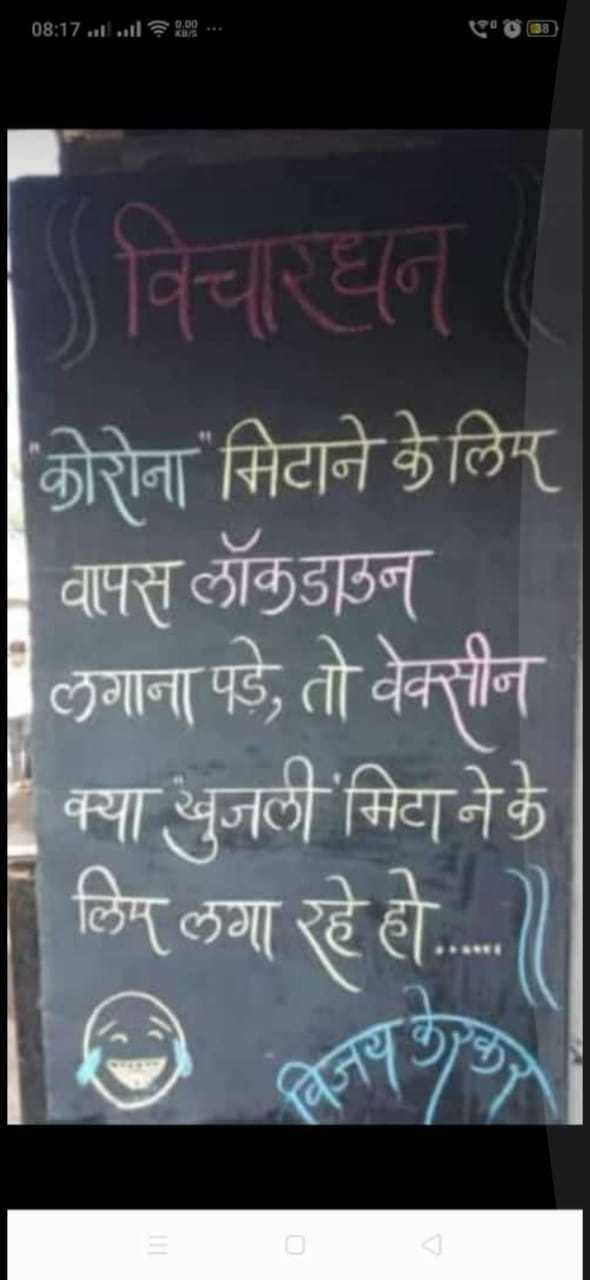 08:17
0.00
KB/S
88
विचारधन
"कोरोना" मिटाने के लिए
वापस लॉकडाउन
लगाना पड़े, तो वेक्सीन
क्या "खुजली" मिटाने के
लिए लगा रहे हो......
विजय